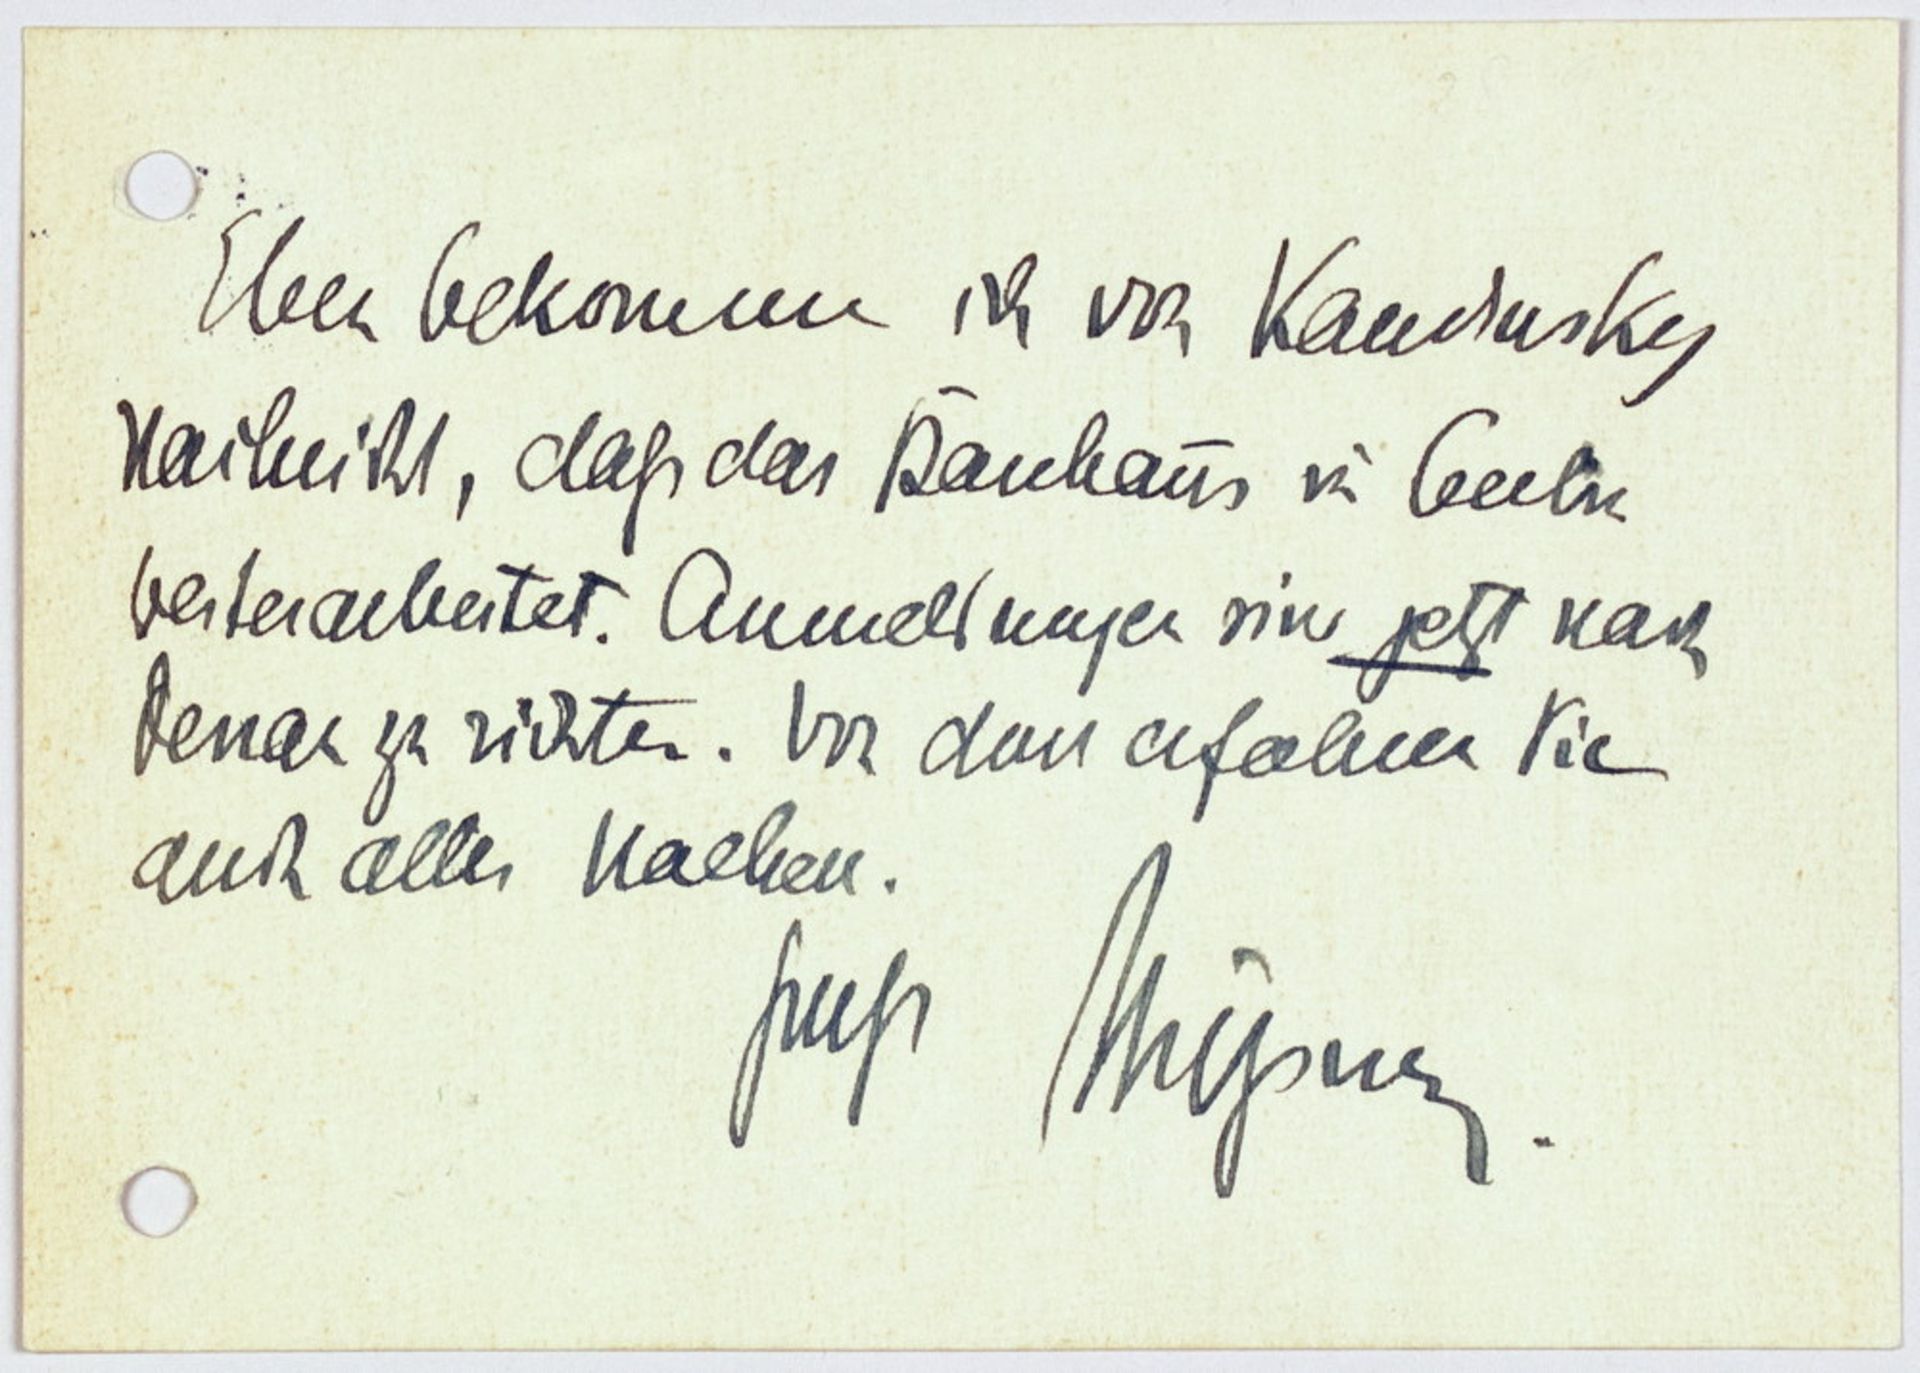 Eben bekomme ich von Kandinsky
Nachricht, daß das Bauhaus in Berlin
weiterarbeitet. Anmeldungen sind jetzt nach
Dessau zu richten. Von dort erfahren Sie
auch alles Nähere.
Gruß